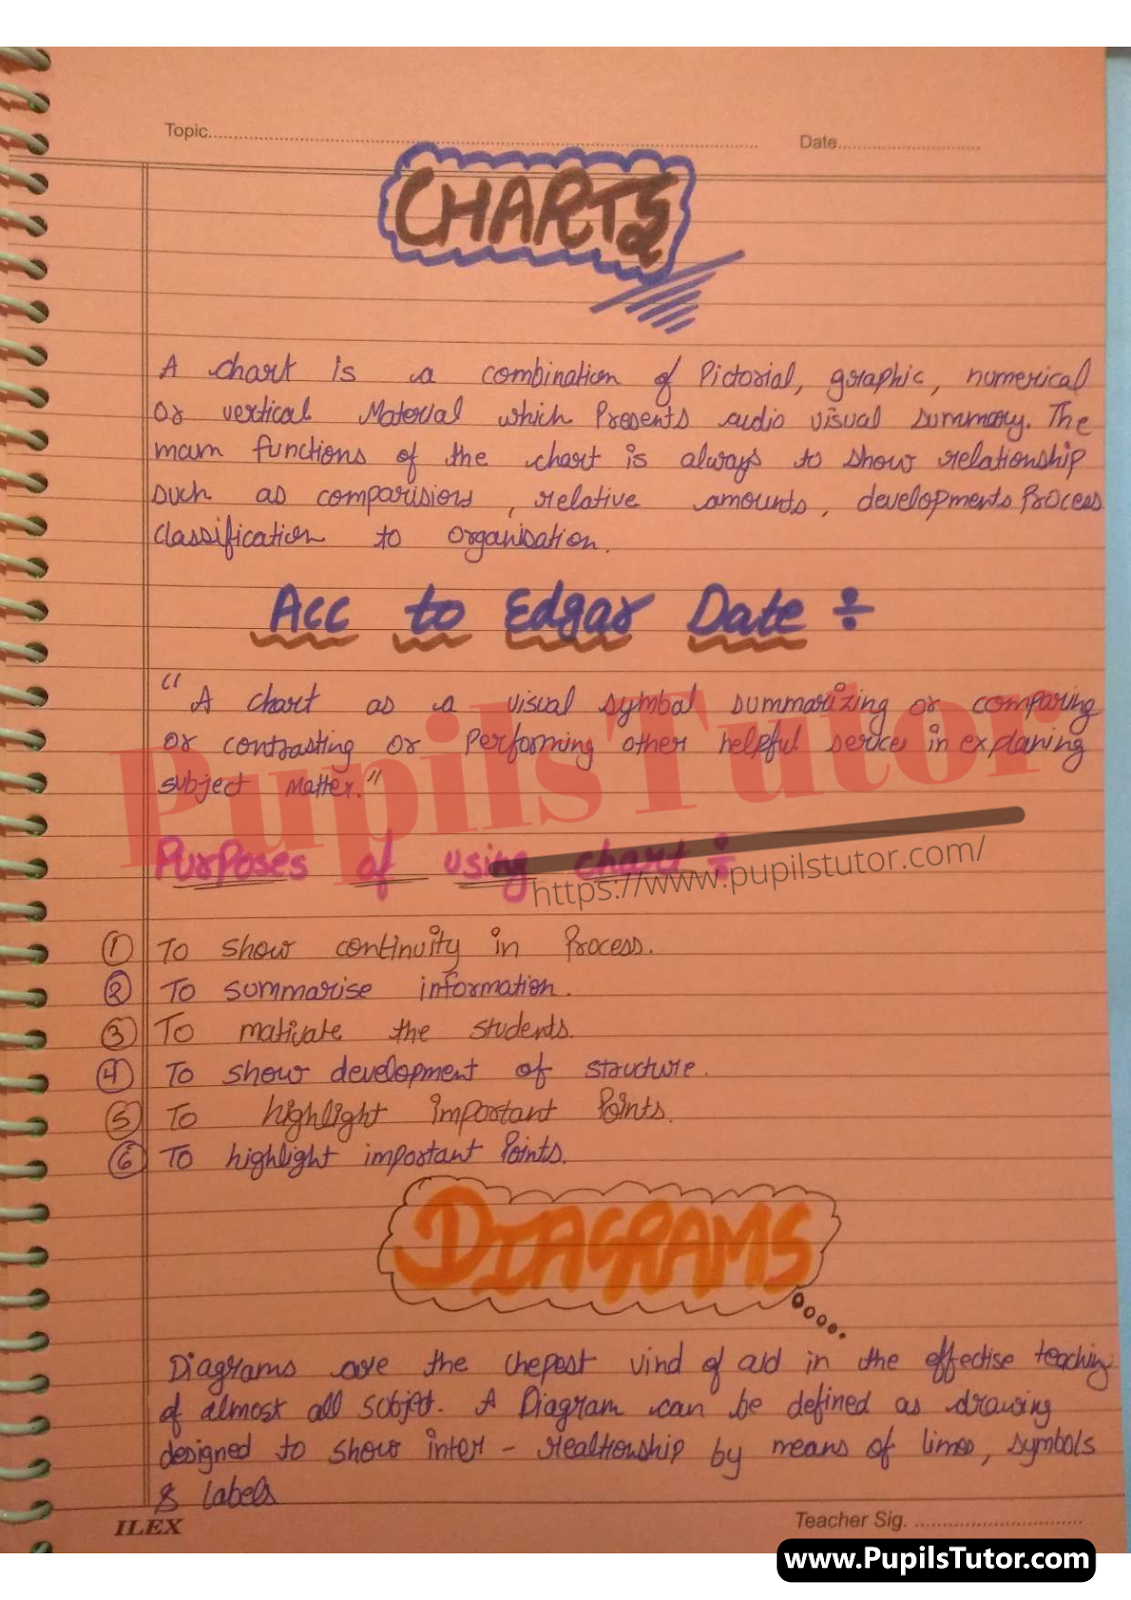 Topic
Date
CHARTS
A chart is a combination of Pictorial, graphic, numerical
or vertical Material which Presents audio visual summary. The
main functions of the chart is always to show relationship
such as comparisiors, relative amounts, developments Process
classification to organisation.
Acc to Edgar Date ÷
"A chart as a visual symbal summarizing or comparing
or contrasting or Performing other helpful serices in explaning
subject Matter."
PupilsTutor
Purposes of using chart ÷
https://www.pupilstutor.com/
① To show continuity in Process.
② To summarise information.
③ To maticate the students.
④ To show development of structure.
⑤ To highlight important Points.
⑥ To highlight important Points.
DIAGRAMS
Diagrams are the chepest vind of aid in the effectise teaching
of almost all scbjet. A Diagram can be defined as drawing
designed to show inter - realtionship by means of limes, symbols
& labels
ILEX
Teacher Sig.
www.PupilsTutor.com